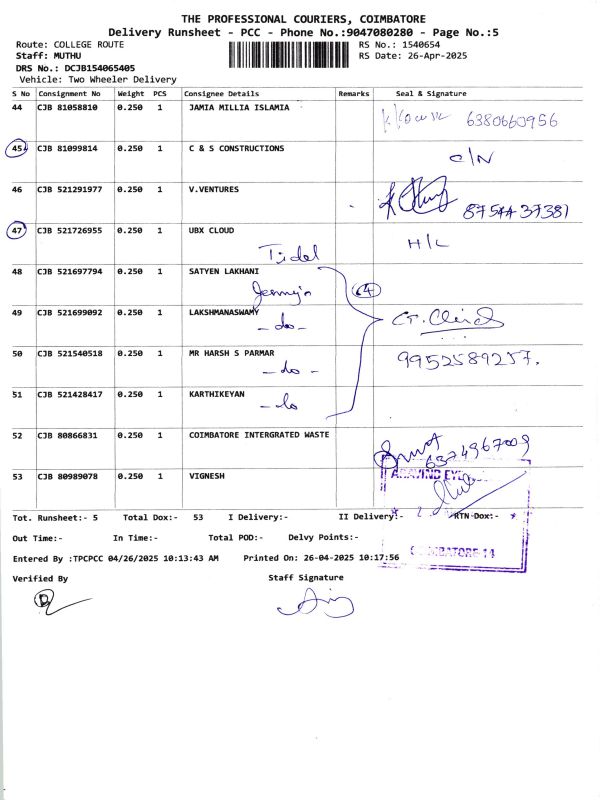 THE PROFESSIONAL COURIERS, COIMBATORE
Delivery Runsheet - PCC - Phone No.:9047080280 - Page No.:5
Route: COLLEGE ROUTE RS No.: 1540654
Staff: MUTHU RS Date: 26-Apr-2025
DRS No.: DCJB154065405
Vehicle: Two Wheeler Delivery
S No Consignment No Weight PCS Consignee Details Remarks Seal & Signature
44 CJB 81058810 0.250 1 JAMIA MILLIA ISLAMIA 6380660956
45 CJB 81099814 0.250 1 C & S CONSTRUCTIONS C/N
46 CJB 521291977 0.250 1 V.VENTURES 8754437381
47 CJB 521726955 0.250 1 UBX CLOUD H/L
Tidel
48 CJB 521697794 0.250 1 SATYEN LAKHANI
4
49 CJB 521699092 0.250 1 LAKSHMANASWAMY
- do -
50 CJB 521540518 0.250 1 MR HARSH S PARMAR 9952589257.
- do -
51 CJB 521428417 0.250 1 KARTHIKEYAN
- do
52 CJB 80866831 0.250 1 COIMBATORE INTERGRATED WASTE
6374967009
53 CJB 80989078 0.250 1 VIGNESH ARAVIND EYE
Tot. Runsheet:- 5 Total Dox:- 53 I Delivery:- II Delivery:- RTN-Dox:-
Out Time:- In Time:- Total POD:- Delvy Points:-
COIMBATORE-14
Entered By :TPCPCC 04/26/2025 10:13:43 AM Printed On: 26-04-2025 10:17:56
Verified By Staff Signature